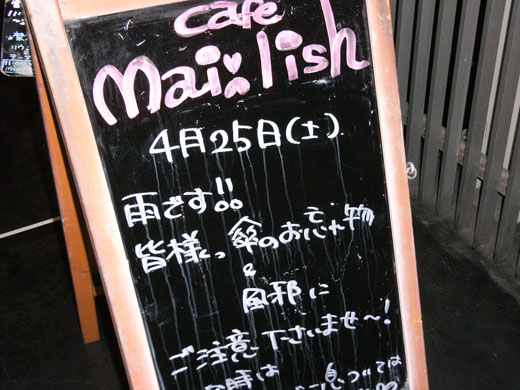 cafe
mai:lish
4月25日(土)
雨です!!
皆様っ傘のお忘れ物
&
風邪に
ご注意下さいませ〜!